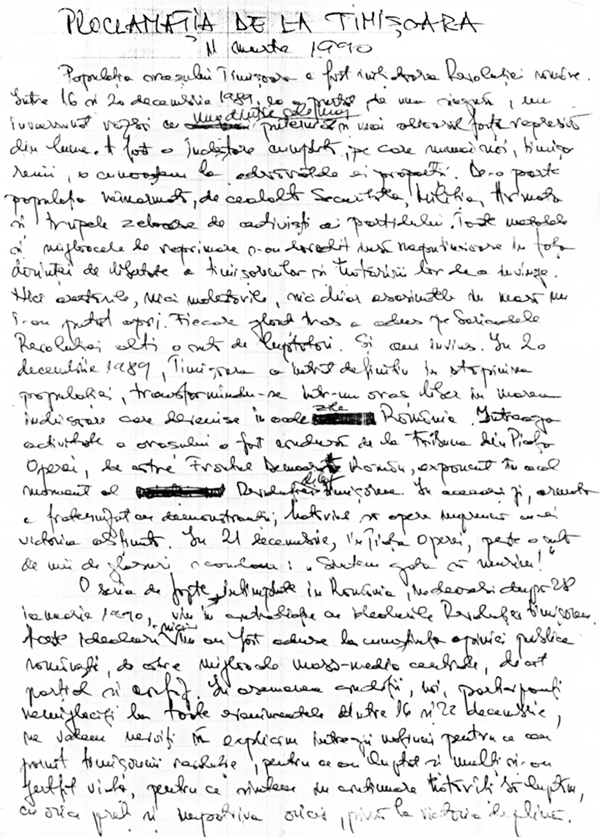 PROCLAMAȚIA DE LA TIMIȘOARA
11 martie 1990
Populația orașului Timișoara a fost inițiatoarea Revoluției române.
Între 16 și 20 decembrie 1989, ea a purtat pe un
înverșunat război cu puternic și mai odios aparat represiv
din lume. A fost o încleștare cumplită, pe care numai noi, timișo
renii, o cunoaștem la adevăratele ei proporții. De o parte
populația neînarmată, de cealaltă Securitatea, Miliția, Armata
și trupele zeloase de activiști ai partidului. Toate metodele
și mijloacele de reprimare s-au dovedit însă neputincioase în fața
dorinței de libertate a timișorenilor și hotărârii lor de a învinge.
Nici arestările, nici molestările, nici chiar asasinatele în masă nu
i-au putut opri. Fiecare glonț tras a adus pe baricadele
Revoluției alți o sută de luptători. Și am învins. În 20
decembrie 1989, Timișoara a intrat definitiv în stăpânirea
populației, transformându-se într-un oraș liber în marea
închisoare care devenise în acele zile România. Întreaga
activitate a orașului a fost condusă de la tribuna din Piața
Operei, de către Frontul Democrat Român, exponent în acel
moment al Revoluției din Timișoara. În aceeași zi, armata
a fraternizat cu demonstranții, hotărând să apere împreună cu ei
victoria obținută. În 21 decembrie, în Piața Operei, peste o sută
de mii de glasuri scandau: „Suntem gata să murim!"
O serie de fapte întâmplate în România, îndeosebi după 28
ianuarie 1990, vin în contradicție cu idealurile Revoluției din Timișoara.
Aceste idealuri nici au fost aduse la cunoștința opiniei publice
românești, de către mijloacele mass-media centrale, decât
parțial și confuz. În asemenea condiții, noi, participanți
nemijlociți la toate evenimentele dintre 16 și 22 decembrie,
ne vedem nevoiți să explicăm întregii națiuni pentru ce au
pornit timișorenii revoluția, pentru ce au luptat și mulți și-au
jertfit viața, pentru ce suntem în continuare hotărâți să luptăm,
cu orice preț și împotriva oricui, până la victoria deplină.